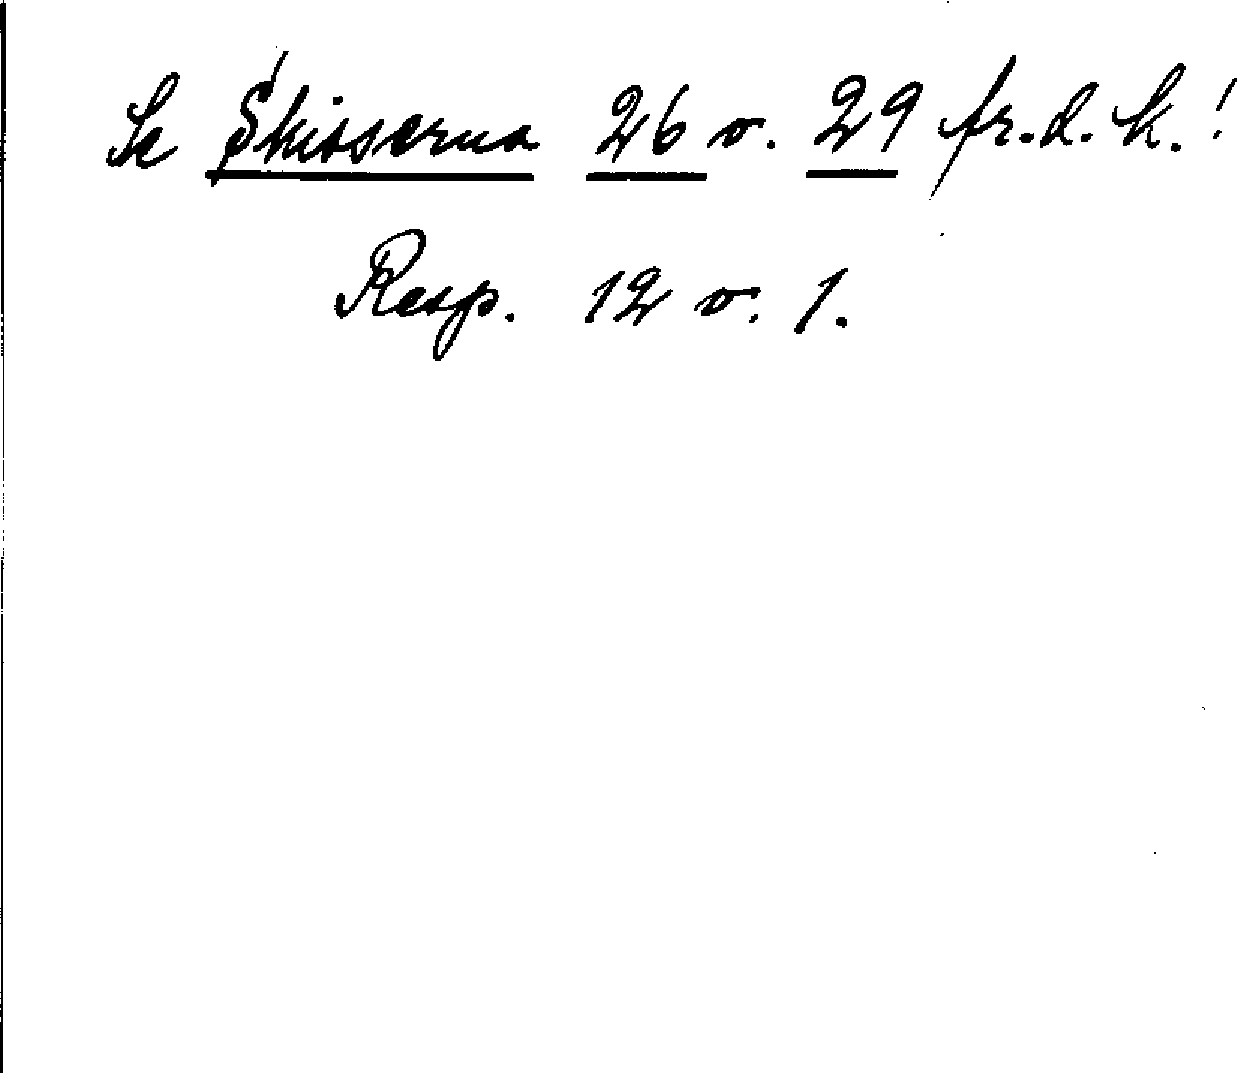 Se Skisserna 26 o. 29 fr. d. k.!
Resp. 12 o. 1.